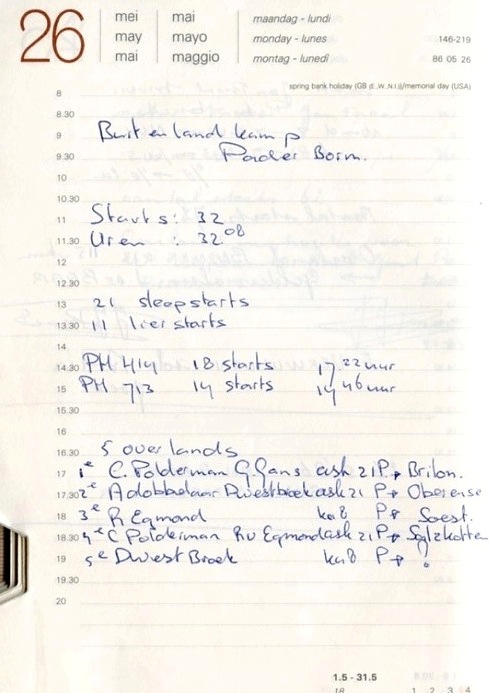 26
mei mai maandag - lundi
may mayo monday - lunes 146-219
mai maggio montag - lunedî 86 05 26
spring bank holiday (GB (E.,W.,N.I.))/memorial day (USA)
8
8.30
9 Buitenlandkamp
9.30 Pader Borm.
10
10.30
11 Starts: 32
11.30 Uren : 32.08
12
12.30
13 21 sleepstarts
13.30 11 lierstarts
14
14.30 PH 414 18 starts 17.22 uur
15 PH 713 14 starts 14 46 uur
15.30
16
16.30 5 overlands
17 1e C. Polderman G. Gans ask 21 P→ Brilon.
17.30 2e A dobbelaar D westbroek ask 21 P→ Oberense
18 3e R Egmond ka8 P→ Soest.
18.30 4e C Polderman R v Egmond ask 21 P→ Salzkotten
19 5e D west Broek ka8 P→ ?
19.30
20
1.5 - 31.5
18 1 2 3 4